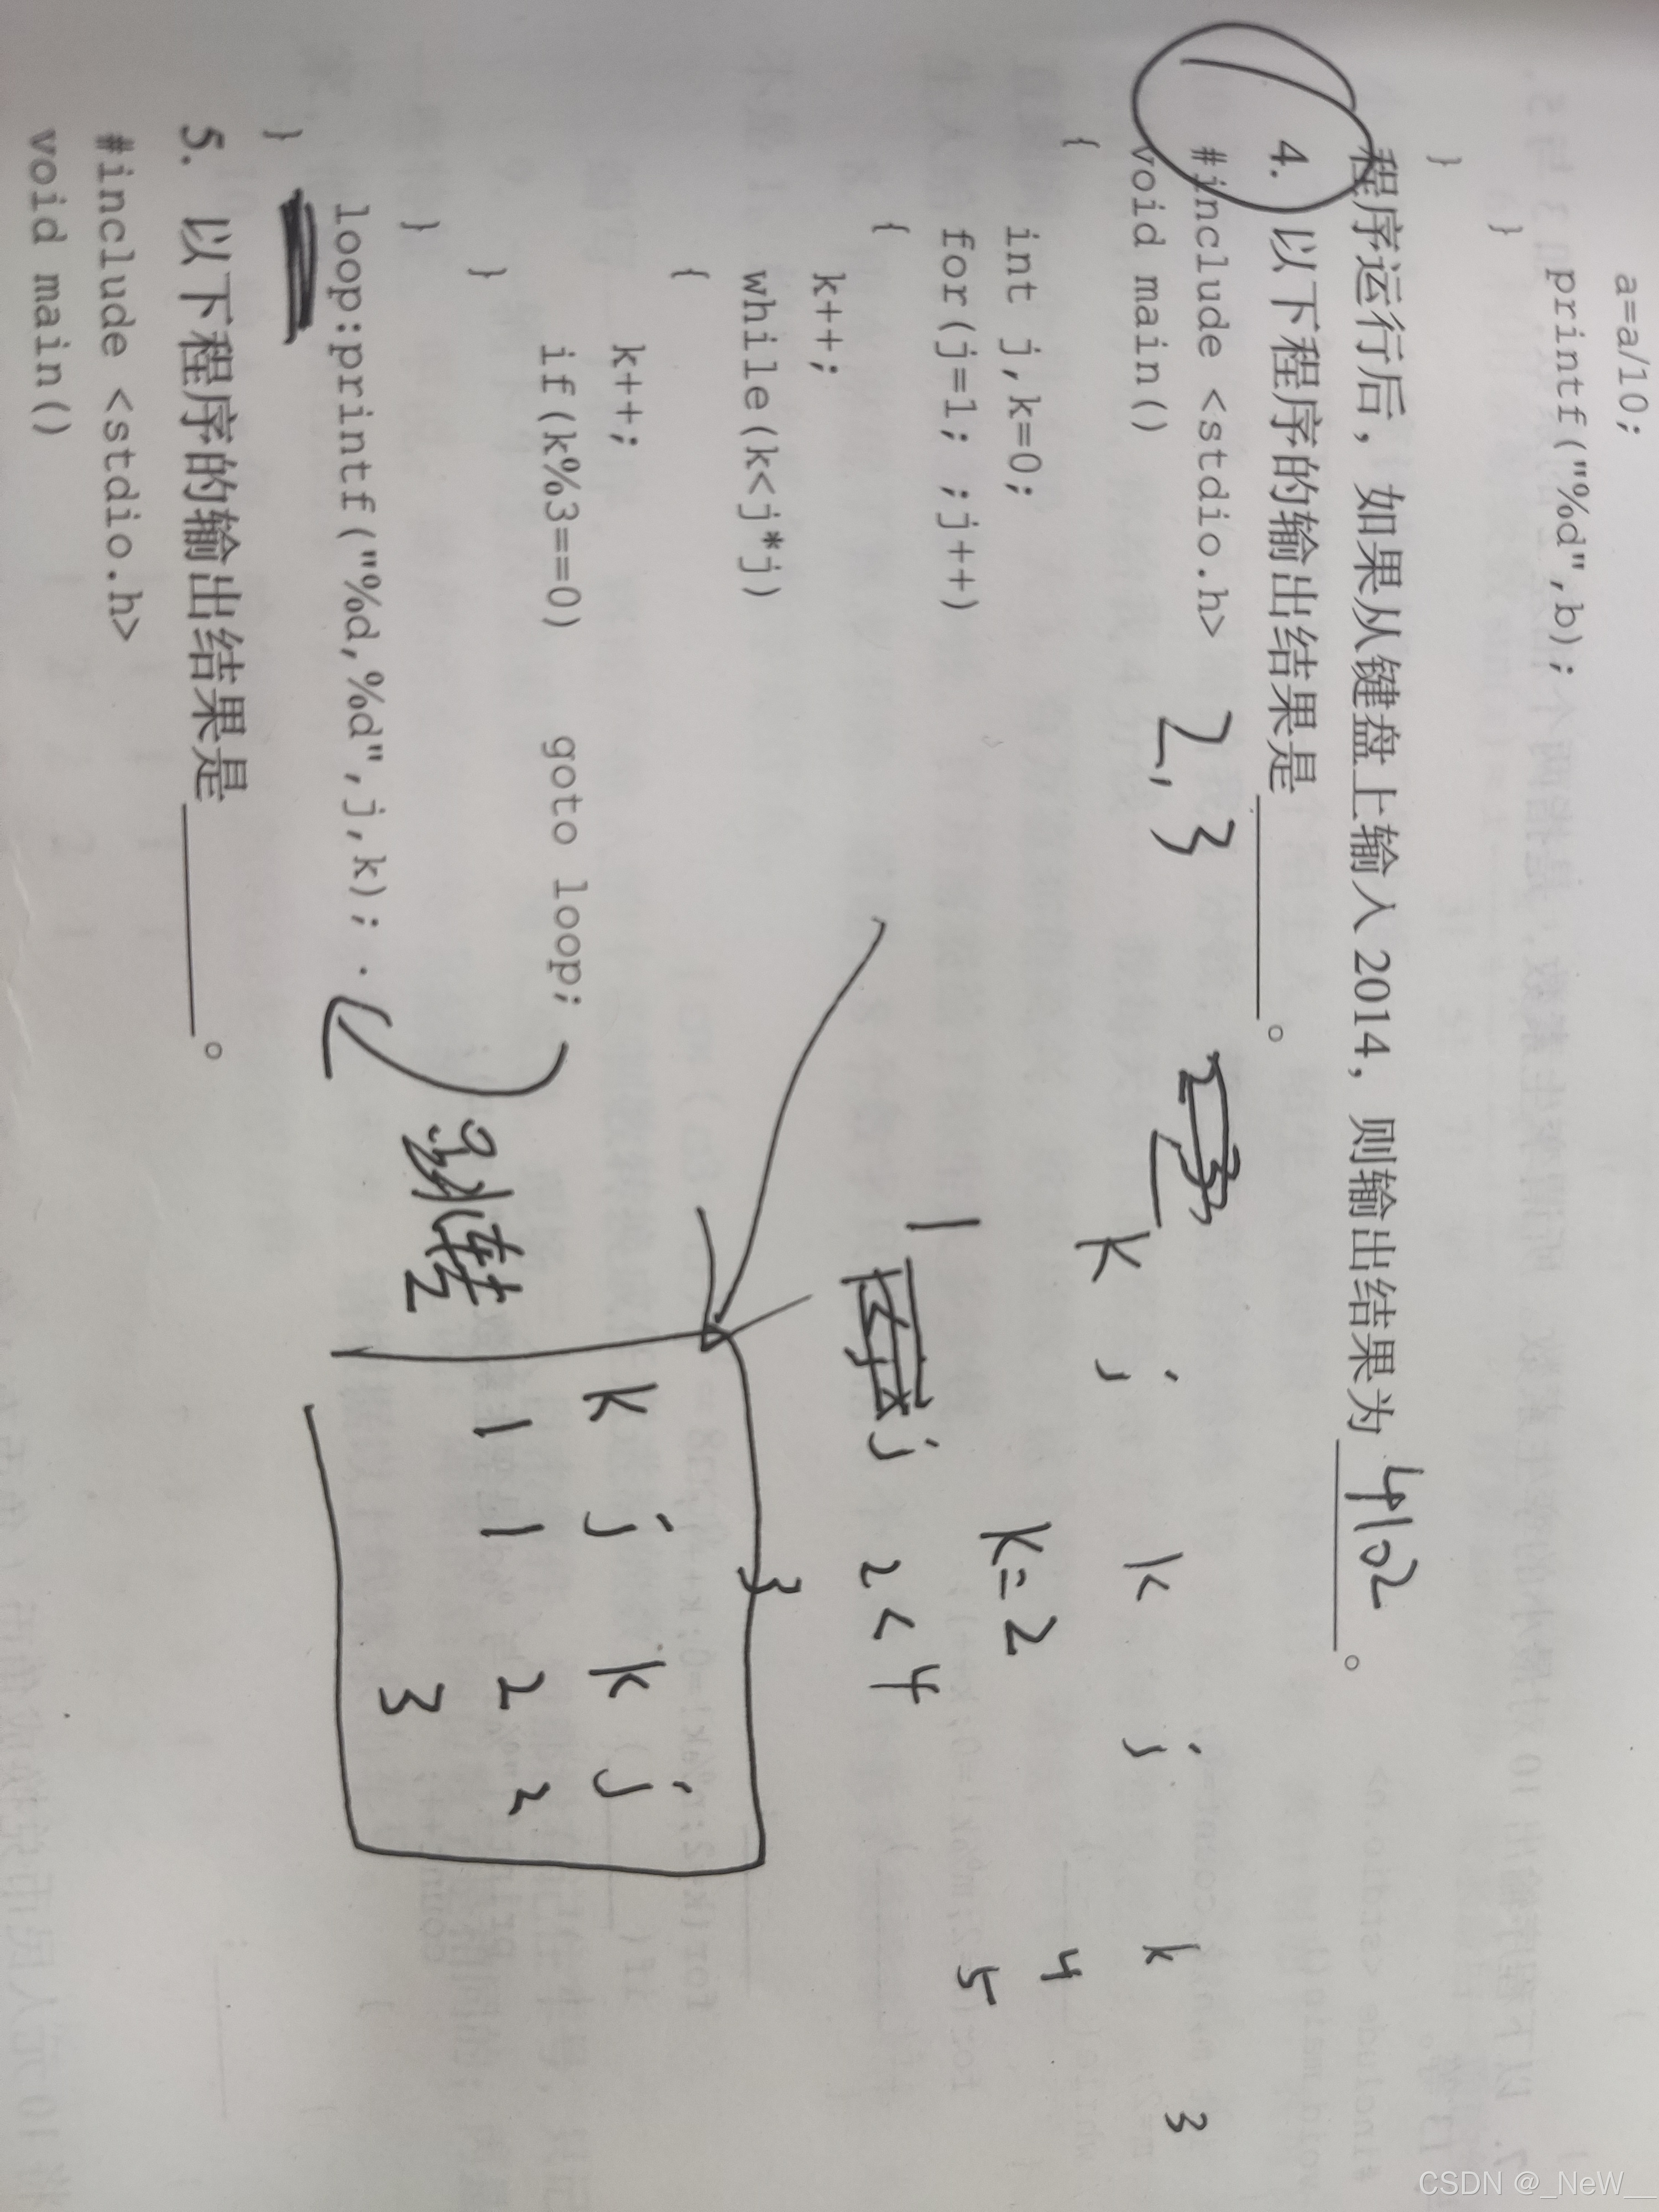 a=a/10;
printf("%d",b);
}
}
程序运行后，如果从键盘上输入 2014，则输出结果为 4102 。
4. 以下程序的输出结果是________。
#include <stdio.h>
void main()
2,3
{
int j,k=0;
for(j=1; ;j++)
{
k++;
while(k<j*j)
{
k++;
if(k%3==0) goto loop;
}
}
loop:printf("%d,%d",j,k);
}
跳转
k j k j k
3
k=2
4
5
1
j 2<4
3
k j k j
1 1 2 2
3
5. 以下程序的输出结果是________。
#include <stdio.h>
void main()
CSDN @_NeW__